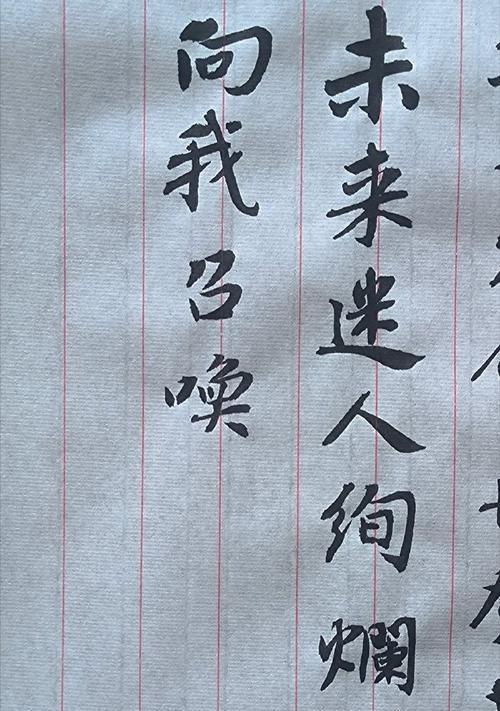 未来迷人绚爛
向我召唤